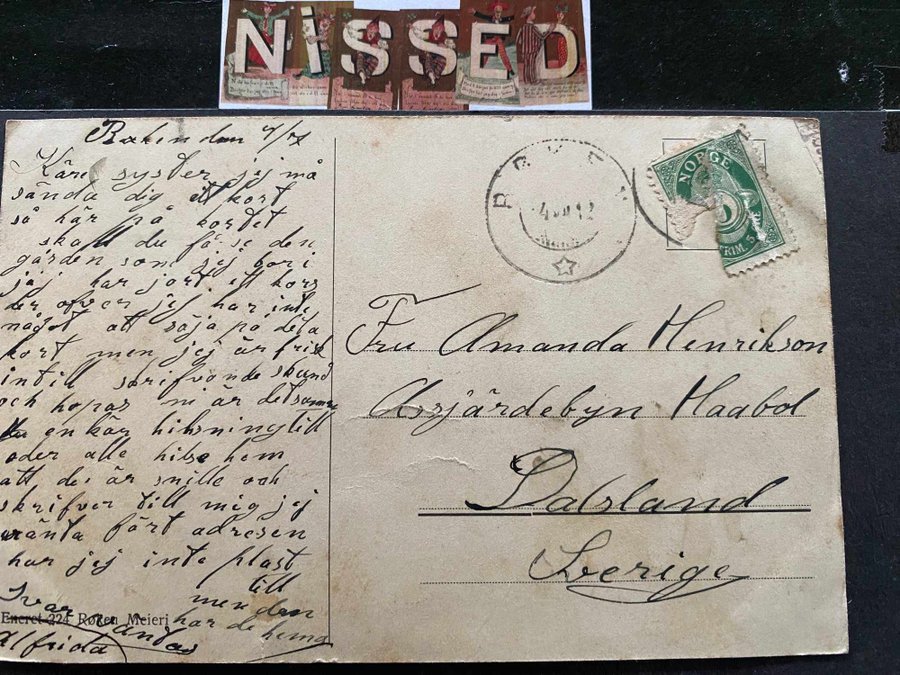 NISSED
Røken den 4/7
Kära syster jej må
sända dig ett kort
så här på kortet
skall du få se den
gården som jej bor i
jej har jort ett kors
der öfver jej har inte
något att säja på deta
kort men jej är frisk
intill skrifvande stund
och hopas ni är detsamma
en kär hilsning till
eder alle hilse hem
att dei är snille och
skrifver till mig jej
vänta fårt adresen
har jej inte plast
till
men den
har de hema
Svar väntas
Alfrida
Eneret 224 Røken Meieri
NORGE
5
Fru Amanda Henrikson
Årjärdebyn Haabol
Dalsland
Sverige